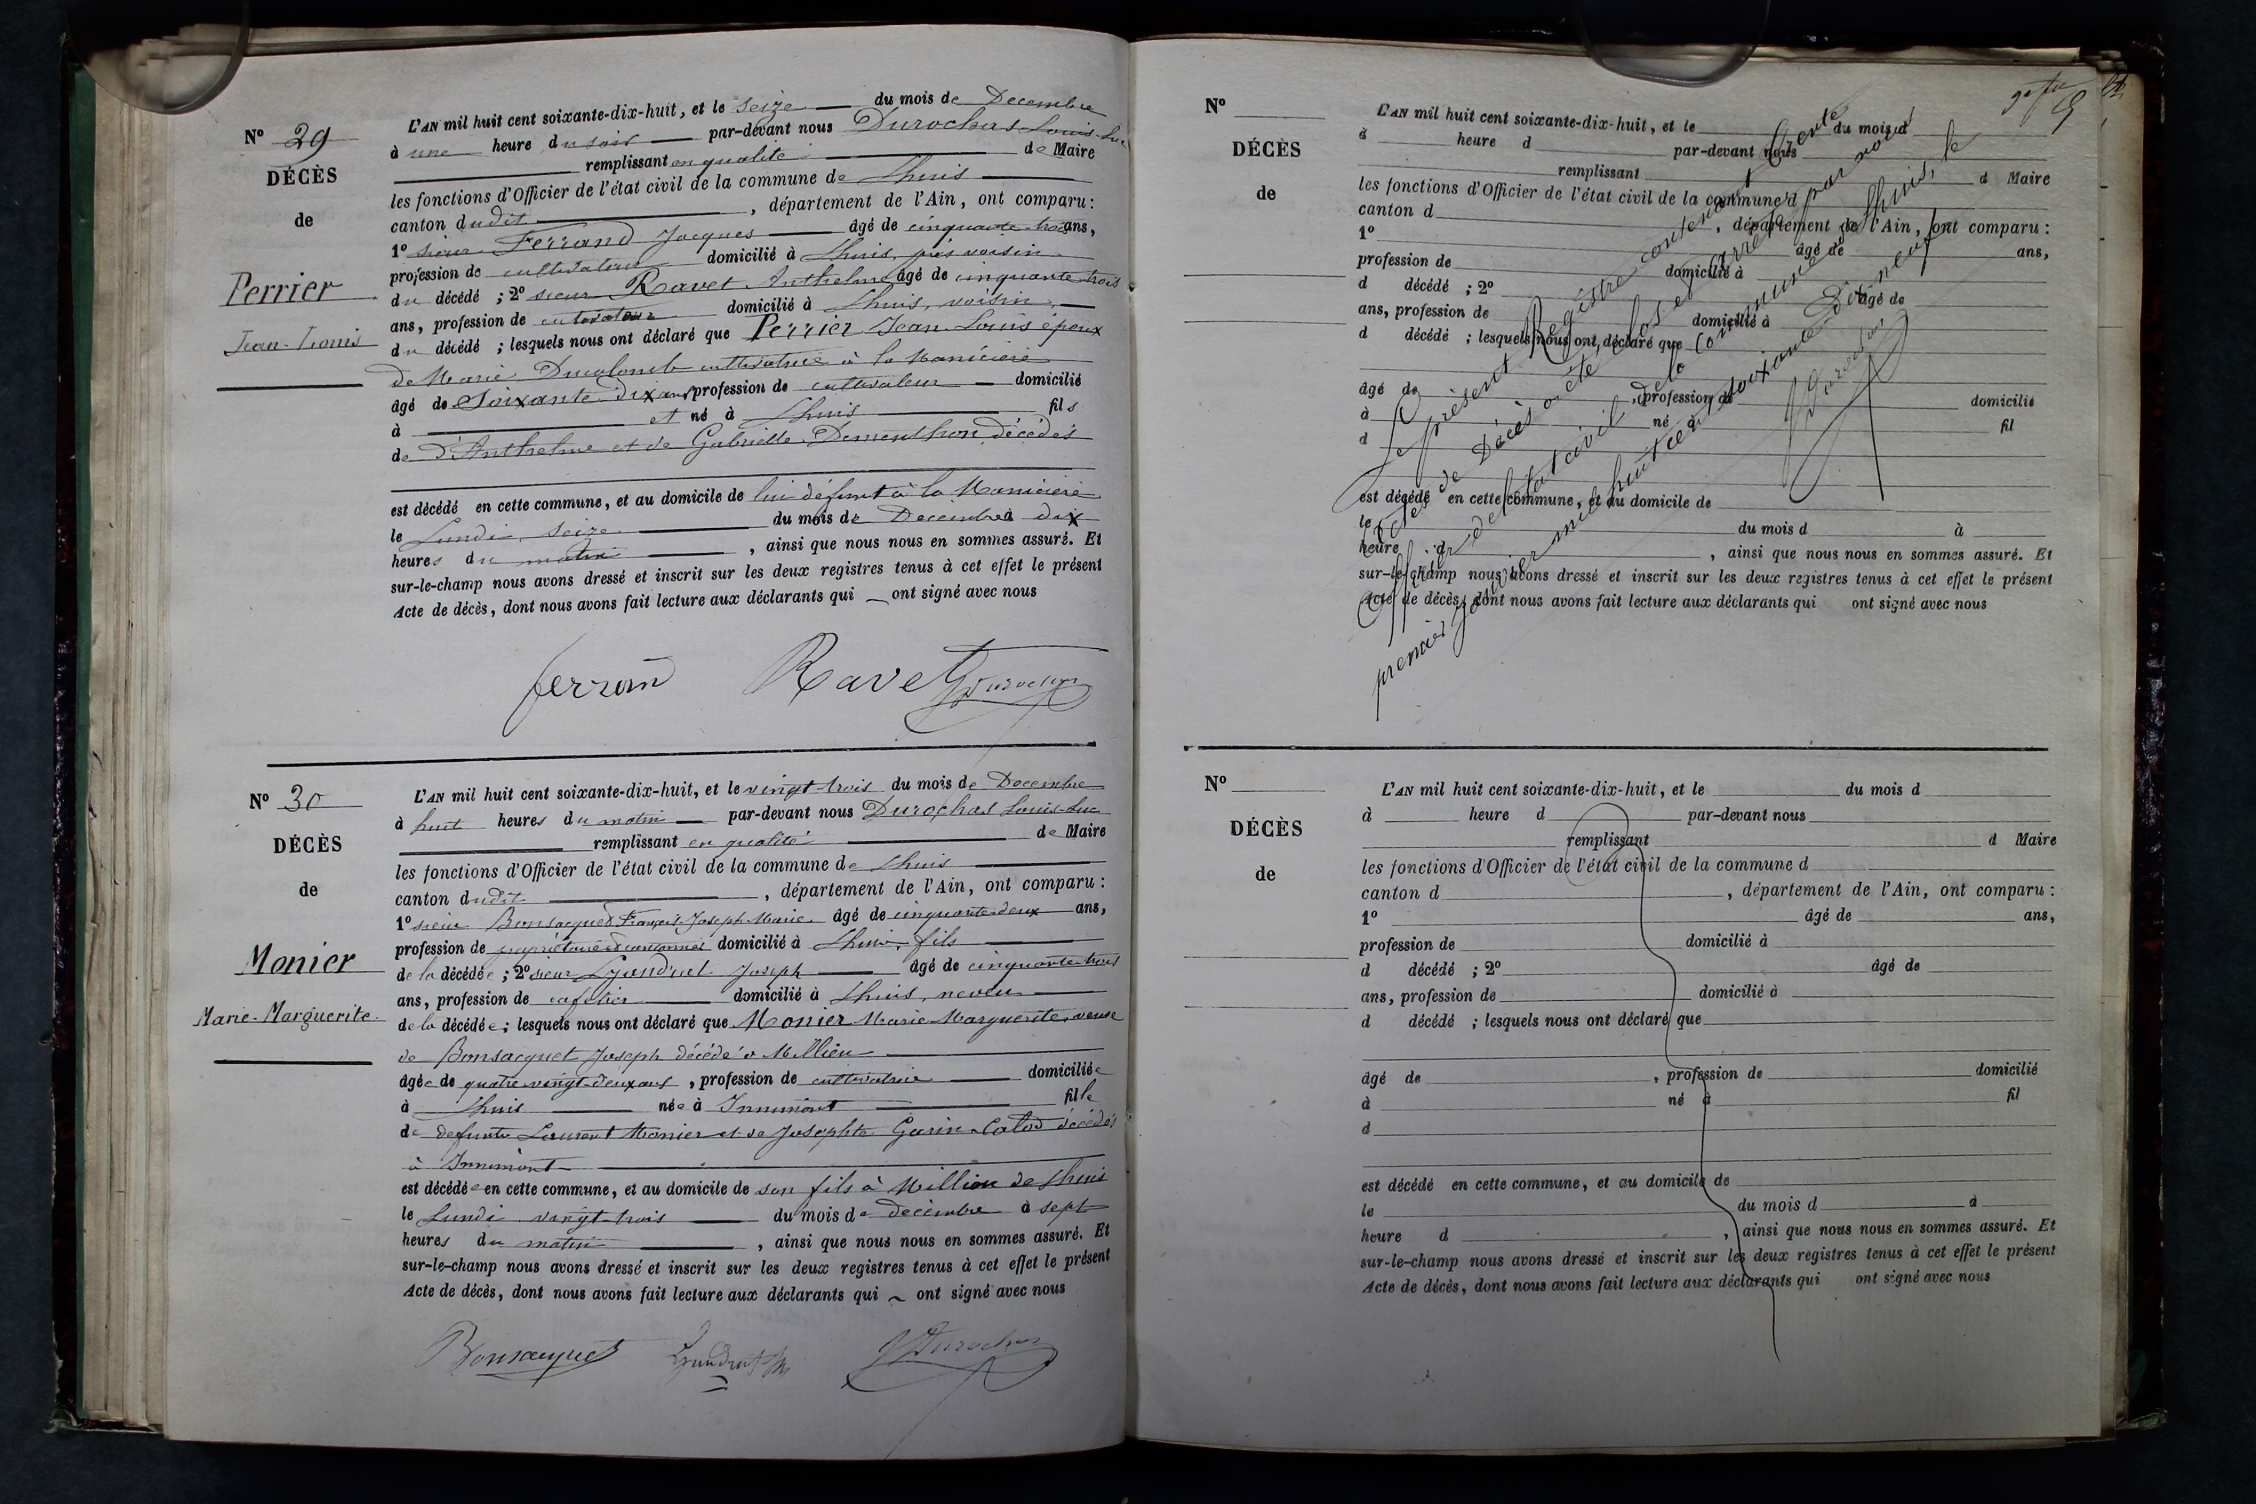 N° 29
DÉCÈS
de
Perrier
Jean-Louis
L'AN mil huit cent soixante-dix-huit, et le seize du mois de Decembre
à une heure du soir par-devant nous Durochas Louis-Luc
remplissant en qualité de Maire
les fonctions d'Officier de l'état civil de la commune de Lhuis
canton dudit , département de l'Ain, ont comparu :
1° sieur Ferrand Jacques âgé de cinquante trois ans,
profession de cultivateur domicilié à Lhuis, près voisin
du décédé ; 2° sieur Ravet Anthelme âgé de cinquante trois
ans, profession de cultivateur domicilié à Lhuis, voisin
du décédé ; lesquels nous ont déclaré que Perrier Jean-Louis époux
de Marie Ducolomb cultivatrice à la Manicière
âgé de Soixante Dix ans profession de cultivateur domicilié
à et né à Lhuis fils
de d'Anthelme et de Gabrielle Dementhon décédés
est décédé en cette commune, et au domicile de lui défunt à la Manicière
le Lundi seize du mois de Decembre à dix
heures du matin , ainsi que nous nous en sommes assuré. Et
sur-le-champ nous avons dressé et inscrit sur les deux registres tenus à cet effet le présent
Acte de décès, dont nous avons fait lecture aux déclarants qui ont signé avec nous
ferran Ravet Durochas
N° 30
DÉCÈS
de
Monier
Marie-Marguerite
L'AN mil huit cent soixante-dix-huit, et le vingt-trois du mois de Decembre
à huit heures du matin par-devant nous Durochas Louis-Luc
remplissant en qualité de Maire
les fonctions d'Officier de l'état civil de la commune de Lhuis
canton dudit , département de l'Ain, ont comparu :
1° sieur Bonsacquet François Joseph Marie âgé de cinquante deux ans,
profession de propriétaire domicilié à Lhuis, fils
de la décédée ; 2° sieur Gandrut Joseph âgé de cinquante trois
ans, profession de cafetier domicilié à Lhuis, neveu
de la décédée ; lesquels nous ont déclaré que Monier Marie Marguerite, veuve
de Bonsacquet Joseph décédé à Millieu
âgée de quatre vingt-deux ans , profession de cultivatrice domiciliée
à Lhuis née à Innimont fille
de defunts Laurent Monier et de Josephte Garin Catod décédés
à Innimont
est décédée en cette commune, et au domicile de son fils à Millieu de Lhuis
le Lundi vingt-trois du mois de decembre à sept
heures du matin , ainsi que nous nous en sommes assuré. Et
sur-le-champ nous avons dressé et inscrit sur les deux registres tenus à cet effet le présent
Acte de décès, dont nous avons fait lecture aux déclarants qui ont signé avec nous
Bonsacquet Durochas
N°
DÉCÈS
de
L'AN mil huit cent soixante-dix-huit, et le du mois d
à heure d par-devant nous
remplissant d Maire
les fonctions d'Officier de l'état civil de la commune d
canton d , département de l'Ain, ont comparu :
1° âgé de ans,
profession de domicilié à
d décédé ; 2° âgé de
ans, profession de domicilié à
d décédé ; lesquels nous ont déclaré que
âgé de , profession de domicilié
à né à fil
d
est décédé en cette commune, et au domicile de
le du mois d à
heure d , ainsi que nous nous en sommes assuré. Et
sur-le-champ nous avons dressé et inscrit sur les deux registres tenus à cet effet le présent
Acte de décès, dont nous avons fait lecture aux déclarants qui ont signé avec nous
Le présent Registre contenant trente
actes de Décès a été clos et arrêté par nous
Officier de l'état civil de la Commune de Lhuis, le
premier janvier mil huit cent soixante Dix neuf
Durochas
N°
DÉCÈS
de
L'AN mil huit cent soixante-dix-huit, et le du mois d
à heure d par-devant nous
remplissant d Maire
les fonctions d'Officier de l'état civil de la commune d
canton d , département de l'Ain, ont comparu :
1° âgé de ans,
profession de domicilié à
d décédé ; 2° âgé de
ans, profession de domicilié à
d décédé ; lesquels nous ont déclaré que
âgé de , profession de domicilié
à né à fil
d
est décédé en cette commune, et au domicile de
le du mois d à
heure d , ainsi que nous nous en sommes assuré. Et
sur-le-champ nous avons dressé et inscrit sur les deux registres tenus à cet effet le présent
Acte de décès, dont nous avons fait lecture aux déclarants qui ont signé avec nous